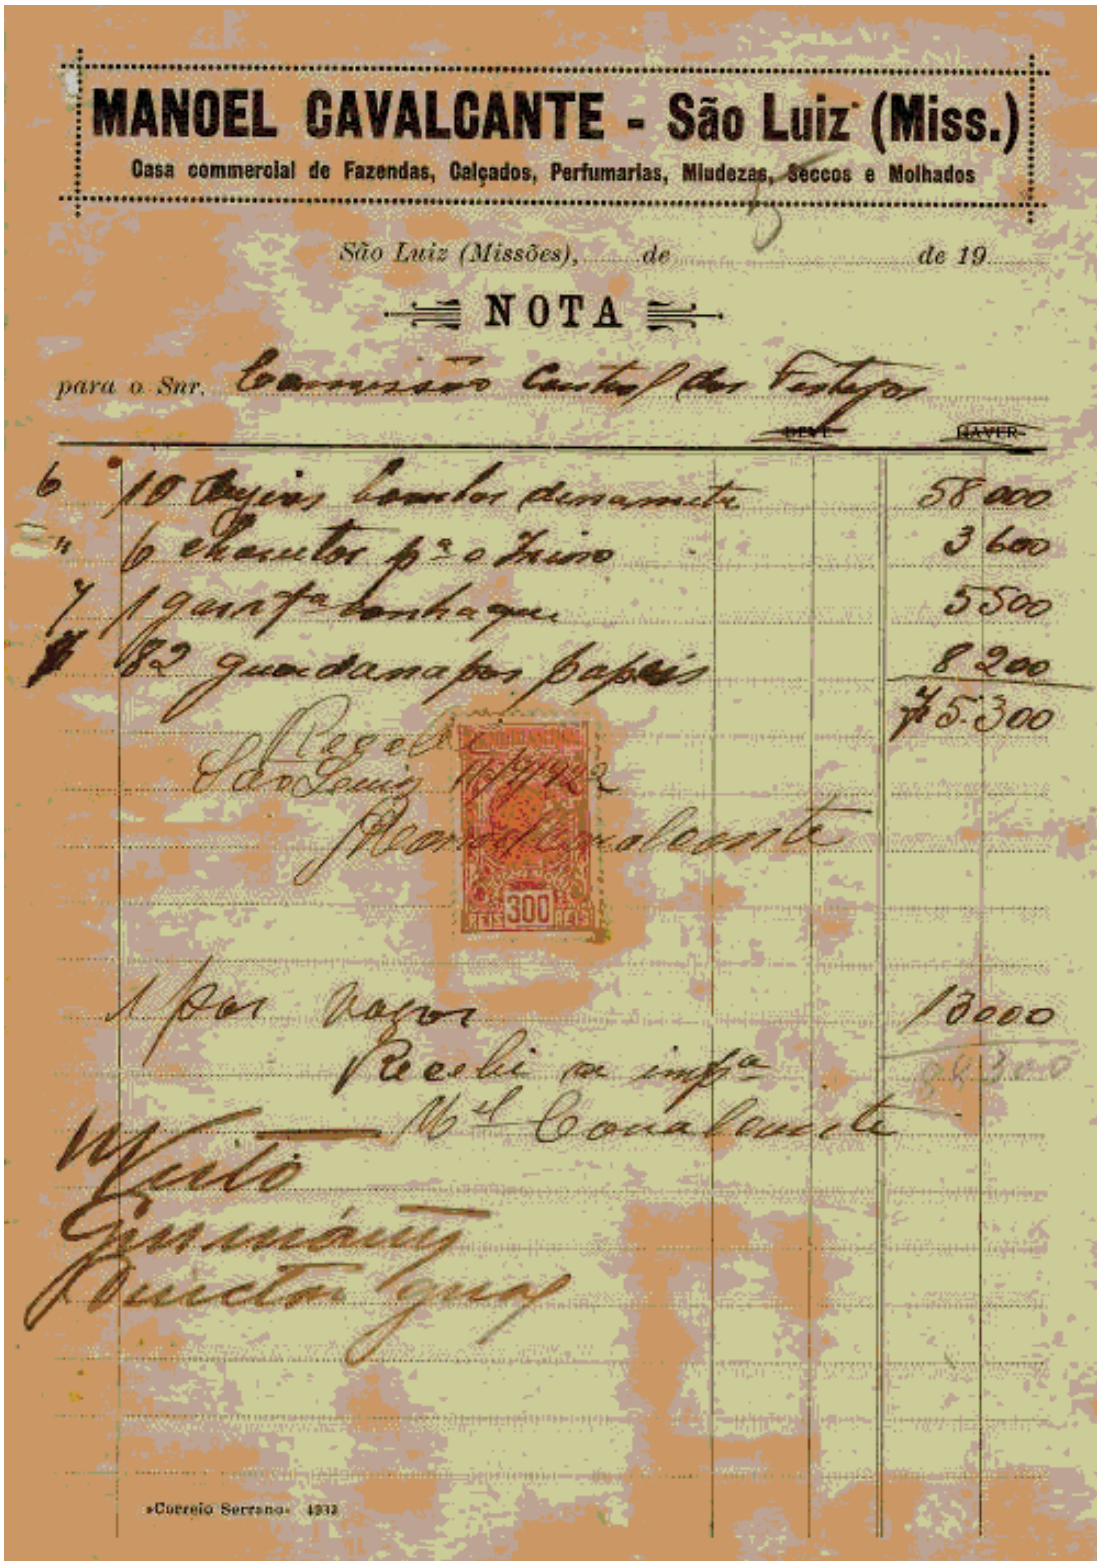 MANOEL CAVALCANTE - São Luiz (Miss.)
Casa commercial de Fazendas, Calçados, Perfumarias, Miudezas, Seccos e Molhados
São Luiz (Missões), de de 19
NOTA
para o Snr. Commissão Central dos Festejos
DEVE HAVER
6 10 bombas 58 000
" 6 charutos pª o 3 600
7 1 garrfª conhaque 5500
82 guardanapos papeis 8 200
75.300
Recebi
São Luiz
Manoel Cavalcante
300
REIS REIS
1 par 13000
Recebi a impª
Mel Cavalcante
»Correio Serrano«